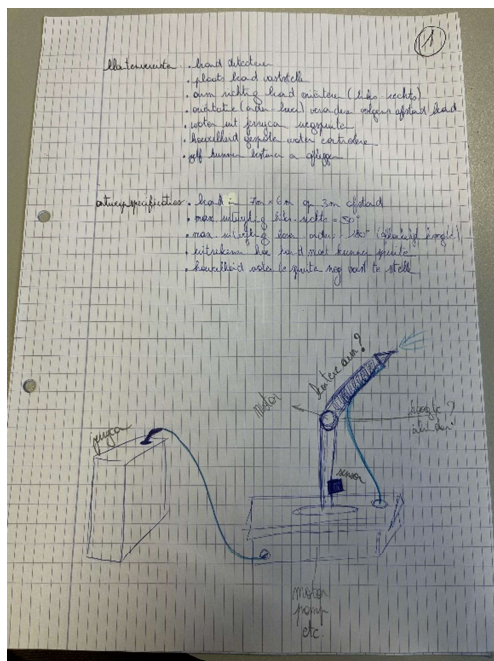 1
klantenvereisten • brand detecteren
• plaats brand vaststellen
• arm richting brand oriënteren (links rechts)
• oriëntatie (onder boven) veranderen volgens afstand brand
• water uit jerrycan wegspuiten
• hoeveelheid gespoten water controleren
• zelf kunnen
ontwerpspecificaties • brand in 7m x 6m op 3m afstand
• max uitwijking links-rechts = 50°
• max uitwijking boven onder =
• uitrekenen hoe hard moet kunnen spuiten
• hoeveelheid water te spuiten nog vast te stellen
kortere arm?
motor
hoogte
jerrycan
sensor
motor
pomp
etc